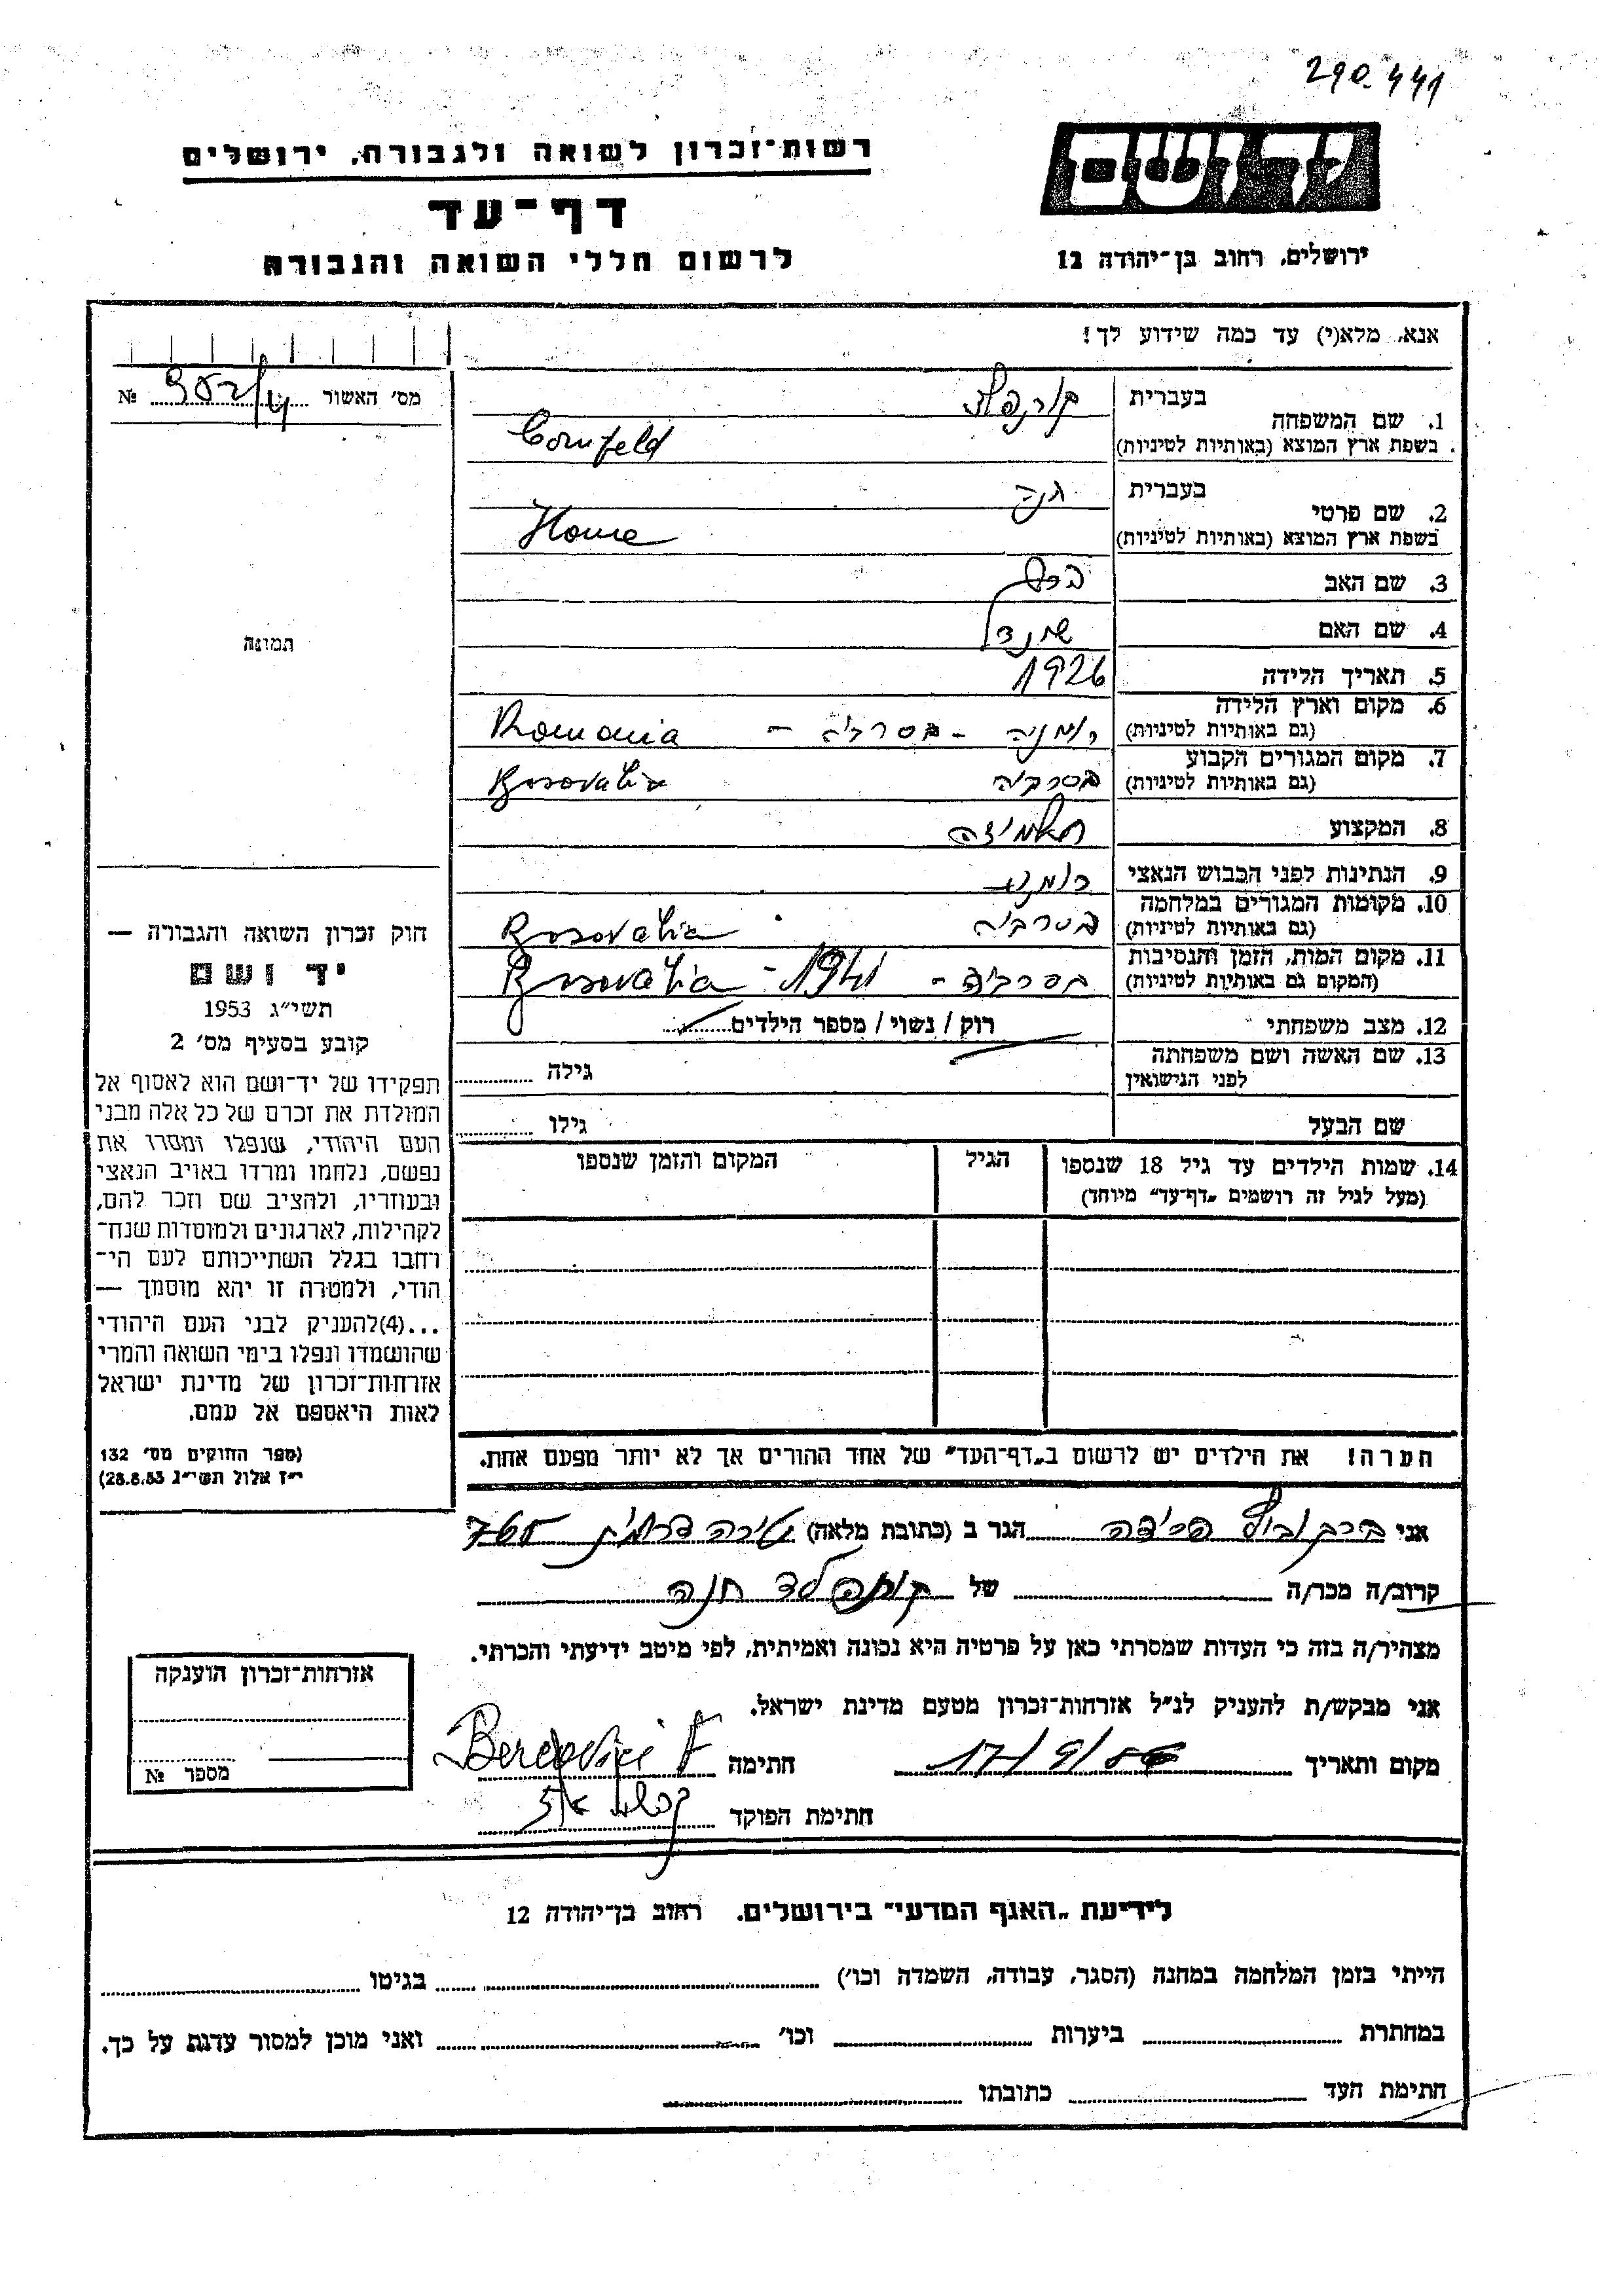 290.441
רשות־זכרון לשואה ולגבורה, ירושלים
יד ושם
דף־עד
לרשום חללי השואה והגבורה
ירושלים, רחוב בן־יהודה 12
אנא, מלא(י) עד כמה שידוע לך!
מס׳ האשור № 902/4
בעברית
קורנפלד
1. שם המשפחה
בשפת ארץ המוצא (באותיות לטיניות)
Cornfeld
בעברית
חנה
2. שם פרטי
בשפת ארץ המוצא (באותיות לטיניות)
3. שם האב
4. שם האם
שיינדל
תמונה
5. תאריך הלידה 1926
6. מקום וארץ הלידה
(גם באותיות לטיניות)
רומניה - בסרביה - Romania
7. מקום המגורים הקבוע
(גם באותיות לטיניות)
בסרביה
8. המקצוע תלמידה
9. הנתינות לפני הכבוש הנאצי רומנית
10. מקומות המגורים במלחמה
(גם באותיות לטיניות)
בסרביה
11. מקום המות, הזמן והנסיבות
(המקום גם באותיות לטיניות)
בסרביה - 1941 -
12. מצב משפחתי רוק / נשוי / מספר הילדים
13. שם האשה ושם משפחתה
לפני הנישואין
גילה
שם הבעל גילו
14. שמות הילדים עד גיל 18 שנספו
(מעל לגיל זה רושמים „דף־עד״ מיוחד)
הגיל
המקום והזמן שנספו
חוק זכרון השואה והגבורה —
יד ושם
תשי״ג 1953
קובע בסעיף מס׳ 2
תפקידו של יד־ושם הוא לאסוף אל
המולדת את זכרם של כל אלה מבני
העם היהודי, שנפלו ומסרו את
נפשם, נלחמו ומרדו באויב הנאצי
ובעוזריו, ולהציב שם וזכר להם,
לקהילות, לארגונים ולמוסדות שנח־
רחבו בגלל השתייכותם לעם הי־
הודי, ולמטרה זו יהא מוסמך —
...(4)להעניק לבני העם היהודי
שהושמדו ונפלו בימי השואה והמרי
אזרחות־זכרון של מדינת ישראל
לאות היאספם אל עמם.
(ספר החוקים מס׳ 132
י״ז אלול תשי״ג 28.8.53)
הערה! את הילדים יש לרשום ב„דף־העד״ של אחד ההורים אך לא יותר מפעם אחת.
אני ברקוביץ פרידה הגר ב (כתובת מלאה) טירה כרמל 765
קרוב/ה מכר/ה של קורנפלד חנה
מצהיר/ה בזה כי העדות שמסרתי כאן על פרטיה היא נכונה ואמיתית, לפי מיטב ידיעתי והכרתי.
אני מבקש/ת להעניק לנ״ל אזרחות־זכרון מטעם מדינת ישראל.
מקום ותאריך 17/9/56 חתימה
חתימת הפוקד
אזרחות־זכרון הוענקה
מספר №
לידיעת „האגף המדעי״ בירושלים. רחוב בן־יהודה 12
הייתי בזמן המלחמה במחנה (הסגר, עבודה, השמדה וכו׳) בגיטו
במחתרת ביערות וכו׳ ואני מוכן למסור עדות על כך.
חתימת העד כתובתו